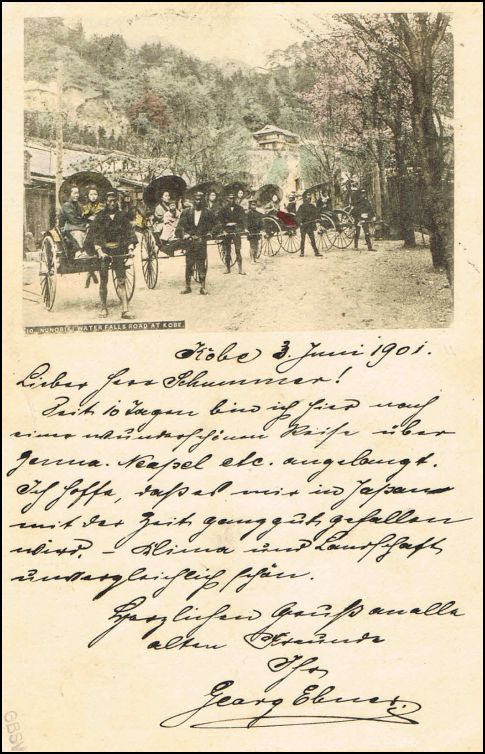 10. NUNOBIKI WATER FALLS ROAD AT KOBE.
Kobe 3. Juni 1901.
Lieber Herr Schummer!
Seit 10 Tagen bin ich hier nach
einer wunderschönen Reise über
Genua. Neapel etc. angelangt.
Ich hoffe, daß es mir in Japan
mit der Zeit ganz gut gefallen
wird. – Klima und Landschaft
unvergleichlich schön.
Herzlichen Gruß an alle
alten Freunde
Ihr
Georg Ebner.
GBSW